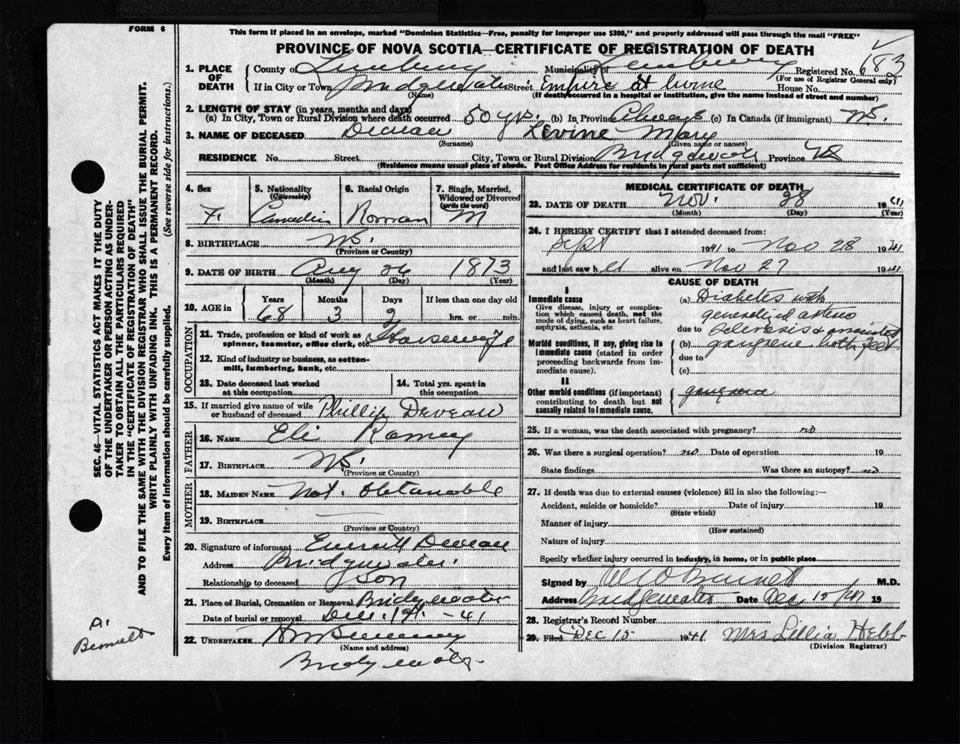 FORM 6
This form if placed in an envelope, marked "Dominion Statistics—Free, penalty for improper use $300," and properly addressed will pass through the mail "FREE"
PROVINCE OF NOVA SCOTIA—CERTIFICATE OF REGISTRATION OF DEATH
1. PLACE OF DEATH
County of Lunenburg Municipality of Lunenburg Registered No. 183
(For use of Registrar General only)
If in City or Town Bridgewater Street Empire St home House No.
(Name) (If death occurred in a hospital or institution, give the name instead of street and number)
2. LENGTH OF STAY (in years, months and days)
(a) In City, Town or Rural Division where death occurred 50 yrs. (b) In Province Always (c) In Canada (if immigrant) NS.
3. NAME OF DECEASED Deveau Levine Mary
(Surname) (Given name or names)
RESIDENCE No. Street City, Town or Rural Division Bridgewater Province NS
(Residence means usual place of abode. Post Office Address for residents in rural parts not sufficient)
4. Sex
F.
5. Nationality (Citizenship)
Canadian
6. Racial Origin
Roman
7. Single, Married, Widowed or Divorced (write the word)
M
8. BIRTHPLACE NS.
(Province or Country)
9. DATE OF BIRTH Aug 26 1873
(Month) (Day) (Year)
10. AGE in Years Months Days If less than one day old
68 3 2 hrs. or min.
OCCUPATION
11. Trade, profession or kind of work as spinner, teamster, office clerk, etc. Housewife
12. Kind of industry or business, as cotton-mill, lumbering, bank, etc.
13. Date deceased last worked at this occupation
14. Total yrs. spent in this occupation
15. If married give name of wife or husband of deceased Phillip Deveau
FATHER
16. NAME Eli Ramey
17. BIRTHPLACE NS.
(Province or Country)
MOTHER
18. MAIDEN NAME Not. Obtanable
19. BIRTHPLACE
(Province or Country)
20. Signature of informant Everett Deveau
Address Bridgewater
Relationship to deceased Son
21. Place of Burial, Cremation or Removal Bridgewater
Date of burial or removal Dec. 1st. 41
22. UNDERTAKER
(Name and address)
Bridgewater
MEDICAL CERTIFICATE OF DEATH
23. DATE OF DEATH Nov. 28 1941
(Month) (Day) (Year)
24. I HEREBY CERTIFY that I attended deceased from:
Sept 1941 to Nov 28 1941
and last saw her alive on Nov 27 1941
CAUSE OF DEATH
I
Immediate cause
Give disease, injury or complication which caused death, not the mode of dying, such as heart failure, asphyxia, asthenia, etc.
(a) Diabetes with
generalized arterio
due to sclerosis & associated
Morbid conditions, if any, giving rise to immediate cause (stated in order proceeding backwards from immediate cause).
(b) gangrene both feet
due to
(c)
II
Other morbid conditions (if important) contributing to death but not causally related to immediate cause.
gangrene
25. If a woman, was the death associated with pregnancy? no
26. Was there a surgical operation? no Date of operation 19
State findings Was there an autopsy? no
27. If death was due to external causes (violence) fill in also the following:—
Accident, suicide or homicide? Date of injury 19
(State which)
Manner of injury
(How sustained)
Nature of injury
Specify whether injury occurred in industry, in home, or in public place
Signed by M.D.
Address Bridgewater Date Dec 15/41 19
28. Registrar's Record Number
29. Filed Dec 15 1941 Mrs Lillia Hebb
(Division Registrar)
SEC. 46—VITAL STATISTICS ACT MAKES IT THE DUTY OF THE UNDERTAKER OR PERSON ACTING AS UNDERTAKER TO OBTAIN ALL THE PARTICULARS REQUIRED IN THE "CERTIFICATE OF REGISTRATION OF DEATH" AND TO FILE THE SAME WITH THE DIVISION REGISTRAR WHO SHALL ISSUE THE BURIAL PERMIT.
WRITE PLAINLY WITH UNFADING INK. THIS IS A PERMANENT RECORD.
Every item of information should be carefully supplied. (See reverse side for instructions.)